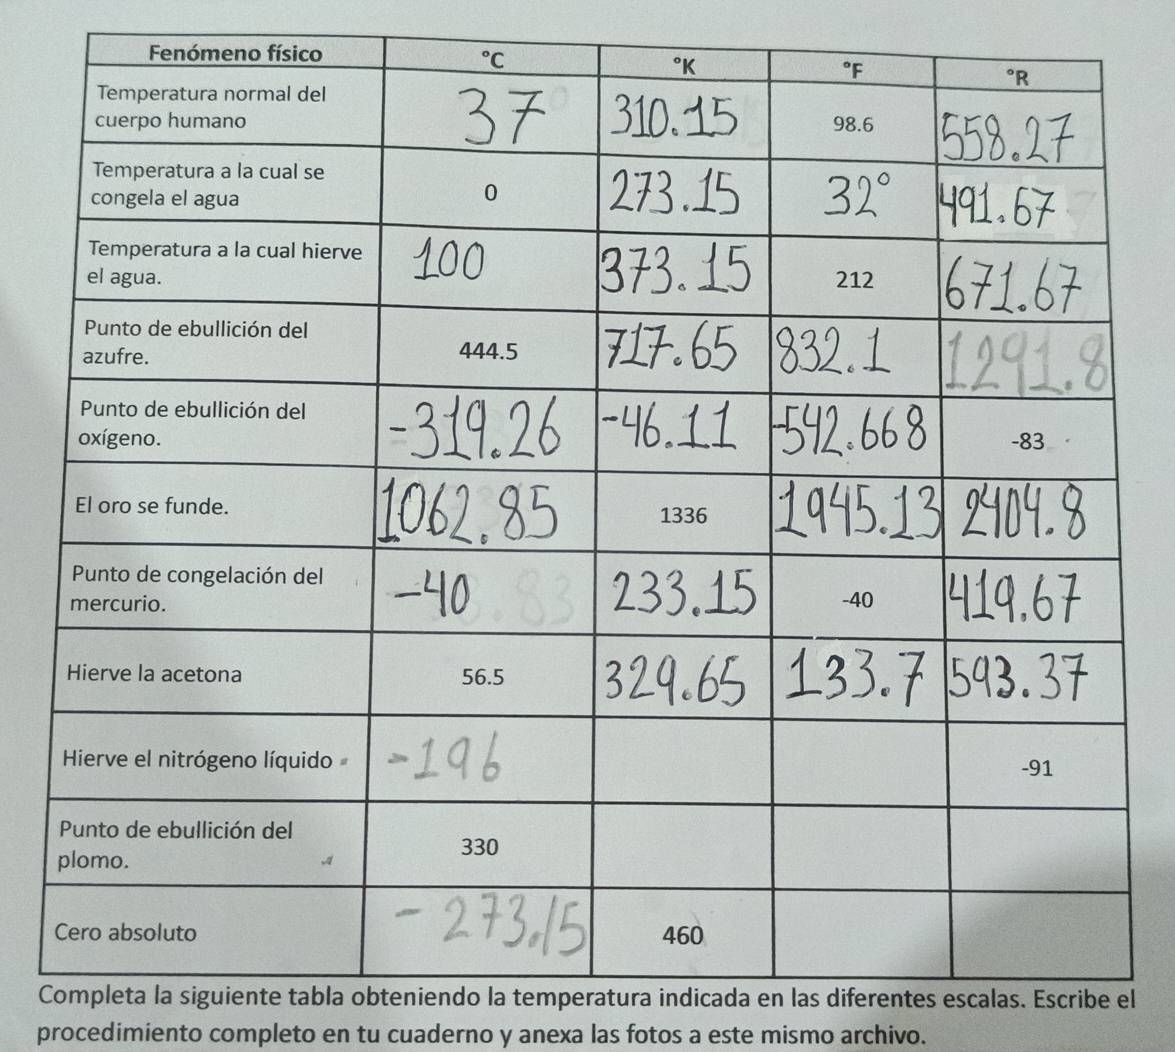 Fenómeno físico °C °K °F °R
Temperatura normal del
cuerpo humano
37 310.15 98.6 558.27
Temperatura a la cual se
congela el agua
0 273.15 32° 491.67
Temperatura a la cual hierve
el agua.
100 373.15 212 671.67
Punto de ebullición del
azufre.
444.5 717.65 832.1 1291.8
Punto de ebullición del
oxígeno.
-319.26 -46.11 -542.668 -83
El oro se funde.
1062.85 1336 1945.13 2404.8
Punto de congelación del
mercurio.
-40 233.15 -40 419.67
Hierve la acetona
56.5 329.65 133.7 593.37
Hierve el nitrógeno líquido
-196 -91
Punto de ebullición del
plomo.
330
Cero absoluto
-273.15 460
Completa la siguiente tabla obteniendo la temperatura indicada en las diferentes escalas. Escribe el
procedimiento completo en tu cuaderno y anexa las fotos a este mismo archivo.